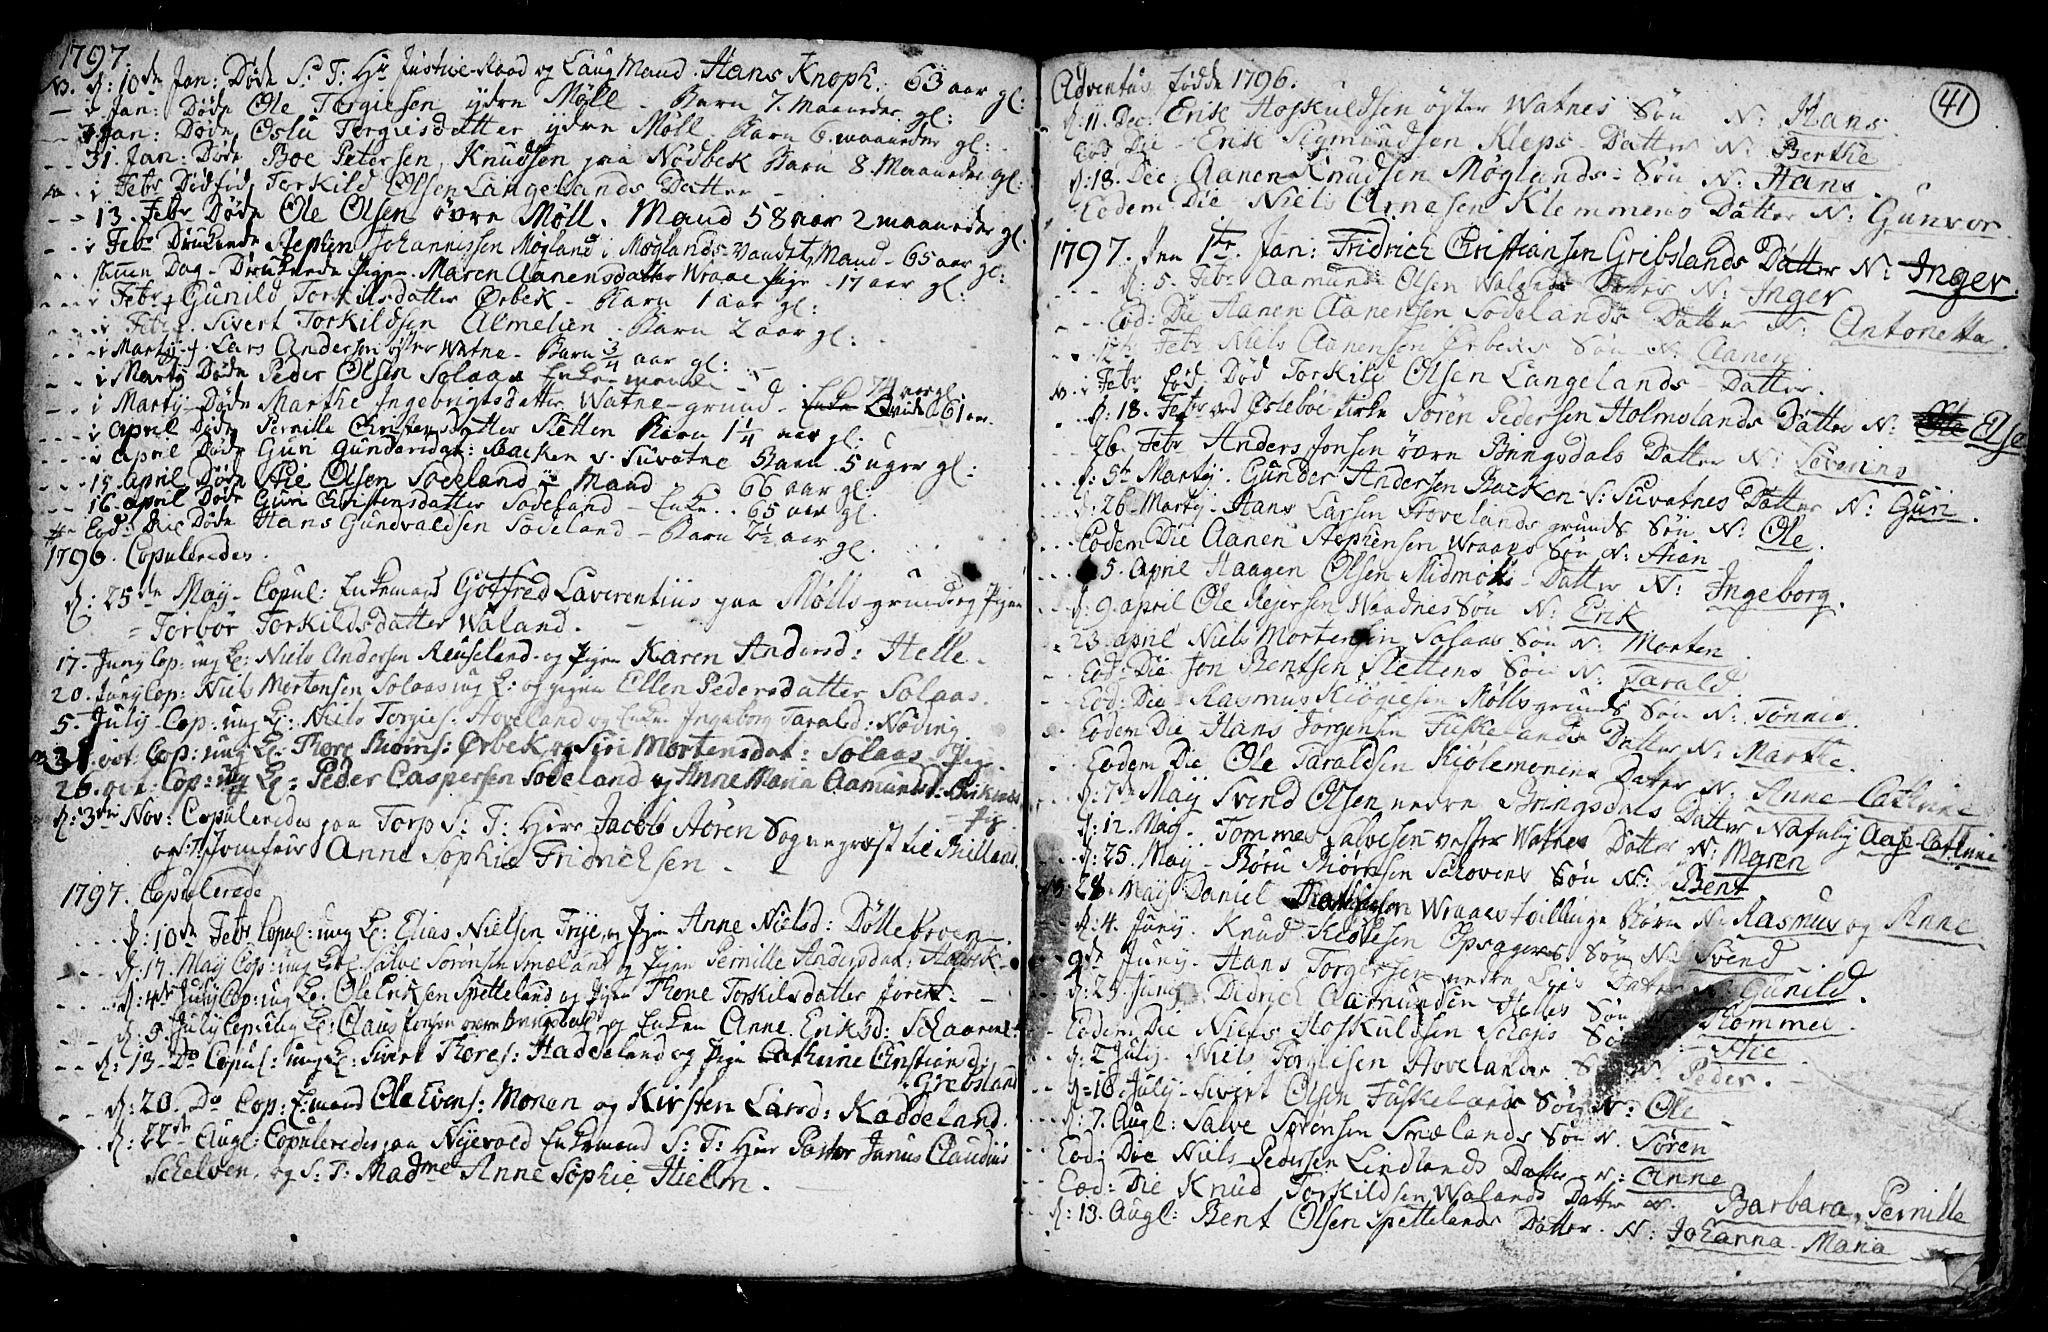 1797.
d: 10de Jan: Døde S: T: Hr Justice-Raad og Laug Mand. Hans Knoph. 63 aar gl:
i Jan: Døde Ole Torgiesen ydre Møll - Barn 7 maaneder gl:
i Jan: Døde Torgiesdatter ydre Møll. Barn 6 maaneder gl:
31. Jan: Døde Boe Petersen Knudsen paa Nødbek Barn 8 Maaneder gl:
i Febr Dødfød Torkild Olsen Langelands Datter -
13. Febr Døde Ole Olsen øvre Møll. Mand 58 aar 2 maaneder gl.
i Febr Johannissen Mögland i Möglands-Vandet, Mand - 65 aar gl:
Dag - Pigen Maren Aanensdatter Wraae Pige - 17 aar gl:
i Febr Gunild Torkilsdatter Ørbek - Barn 1 aar gl:
i Febr. Sivert Torkildsen Almelien. Barn 2 aar gl:
i Martij Lars Andersen øster Watne - Barn 3/4 aar gl:
i Martij Døde Peder Olsen Solaas Enkemand - 74 aar gl
i Martij Døde Marthe Ingebrigtsdatter Watne-grund - Qvinde 61 aar
i April Døde Pernille Christensdatter Stetten Barn 1 1/4 aar gl:
i April Døde Guri Gundersdat: Backen v. Suvatne Barn 5 uger gl:
15 April Døde Stie Olsen Sodeland - Mand 66 aar gl:
16. april Døde Guri Christensdatter Sodeland - Enke. 65 aar gl.
Eod: Die Døde Hans Gundvaldsen Sodeland - Barn 2 1/2 aar gl.
1796. Copulerede.
d: 25de May - Copul: Enkemand Gotfred Laverentius paa Mølls-grund og Pigen
= Torbor Torkildsdatter Waland.
17. Juny Cop: ung K: Niels Andersen Reuseland og Pigen Karen Andersd: Helle.
20. Juny Cop: Niels Mortensen Solaas ung K: og pigen Ellen Pedersdatter Solaas.
5. July - Cop: ung K: Niels Torgies: Hoveland og Enken Ingeborg Taralsd: Nøding.
31. oct: Cop: ung K: Thore Biørns: Ørbek og Siri Mortensdat: Solaas Pige.
26. oct. Cop: ung K: Peder Caspersen Sodeland og Anne Maria Aamunds:
Pige
d: 3die Nov: Copuleredes paa Torp S: T: Herr Jacob Søren Sogneprest til
og S: T: Jomfrue Anne Sophie Fridrichsen.
1797. Copulerede
d: 10de Febr Copul: ung K: Elias Nielsen Frije og Pigen Anne Nielsd: Dölleboen
d: 17. May Cop: ung K: Salve Sørensen Smæland og Pigen Pernille Andersdat:
d: 4de July Cop: ung K: Ole Eriksen Spetteland og Pigen Thone Torkilsdatter
d: 9. July Cop: ung K: Claus Jonsen øvre Bringsdal og Enken Anne Eriksd:
d: 13. Do Copul: ung K: Sivert Thores: Haddeland og Pigen Cathrine Christiansd:
Gribsland
d: 20. Do Cop: E:mand Ole Evens: Monen og Kirsten Larsd: Kaddeland.
d: 22de Augl: Copuleredes paa Nijevold Enkemand S: T: Herr Pastor Janus Claudius
Schelven, og S: T: Madme Anne Sophie Hielm.
41
Adventus fødde 1796.
d: 11. Dec: Erik Hoskuldsen öster Watnes Søn N: Hans.
Eod Die - Erik Sigmundsen Kleps Datter N: Berthe
d: 18. Dec: Aanen Knudsen Møglands - Søn N: Hans
Eodem Die - Niels Arnesen Klemmens Datter N: Gunvor
1797. den 1te Jan: Fridrich Christiansen Gribslands Datter N: Inger.
d: 5. Febr Aamund Olsen Walands Datter N: Inger
Eod: Die Aanen Aanensen Sodelands Datter N: Antonetta
12te Febr Niels Aanensen Ørbeks Søn N: Aanen
i Febr Eod: Død Torkild Olsen Langelands - Datter.
d: 18. Febr ved Øslebøe Kirke Søren Pedersen Holmelands Datter N: Else
26 Febr Anders Jonsen øvre Bringsdals Datter N: Severine
d: 5te Martij. Gunder Andersen Backen v: Suvatnes Datter N: Guri
d: 26. Martij. Hans Larsen Hovelands grunds Søn N: Ole.
Eodem Die Aanen Stephensen Wraaes Søn N: Stian
5. April Haagen Olsen Midmølls Datter N: Ingeborg.
d: 9. april Ole Rejersen Waadnes Søn N: Erik
23. april Niels Mortensen Solaas Søn N: Morten
Eod: Die Jon Bentsen Stettens Søn N: Tarald
Eod: Die - Rasmus Mölls grunds Søn N: Tönnis
Eodem Die Hans Jorgensen Fuskelands Datter N: Marthe.
Eodem Die Ole Taraldsen Kiölemonens Datter N: Anne Cathrine
d: 7de May Svend Olsen nedre Bringsdals Datter Aase Cathrine
d: 12. May. Tommes Salvesen vester Watnes Datter N: Maren
d: 25. May - Biørn Biørnsen Schovens Søn N: Bent
28. May Daniel Wraaes tvillinge Børn N: Rasmus og Anne
d: 4. Juny. Knud Opsagers Søn N: Svend
9de Juny. Hans Torgersen nedre Datter N: Gunild.
d: 25. Juny Didrich Aamundsen Helles Søn N: Thommes.
Eodem Die Niels Hoskuldsen Søn N: Stie
d: 2 July. Niels Torgiesen Hovelands Søn N: Peder.
d: 16. July - Sivert Olsen Fuskelands Søn N: Ole
d: 7. Augl: Salve Sørensen Smælands Søn N. Søren
Eod: Die Niels Pedersen Lindlands Datter N: Anne
Eod: Die Knud Torkildsen Walands Datter N. Barbara, Pernille
d: 13. Augl: Bent Olsen Spettelands Datter. N: Johanna Maria